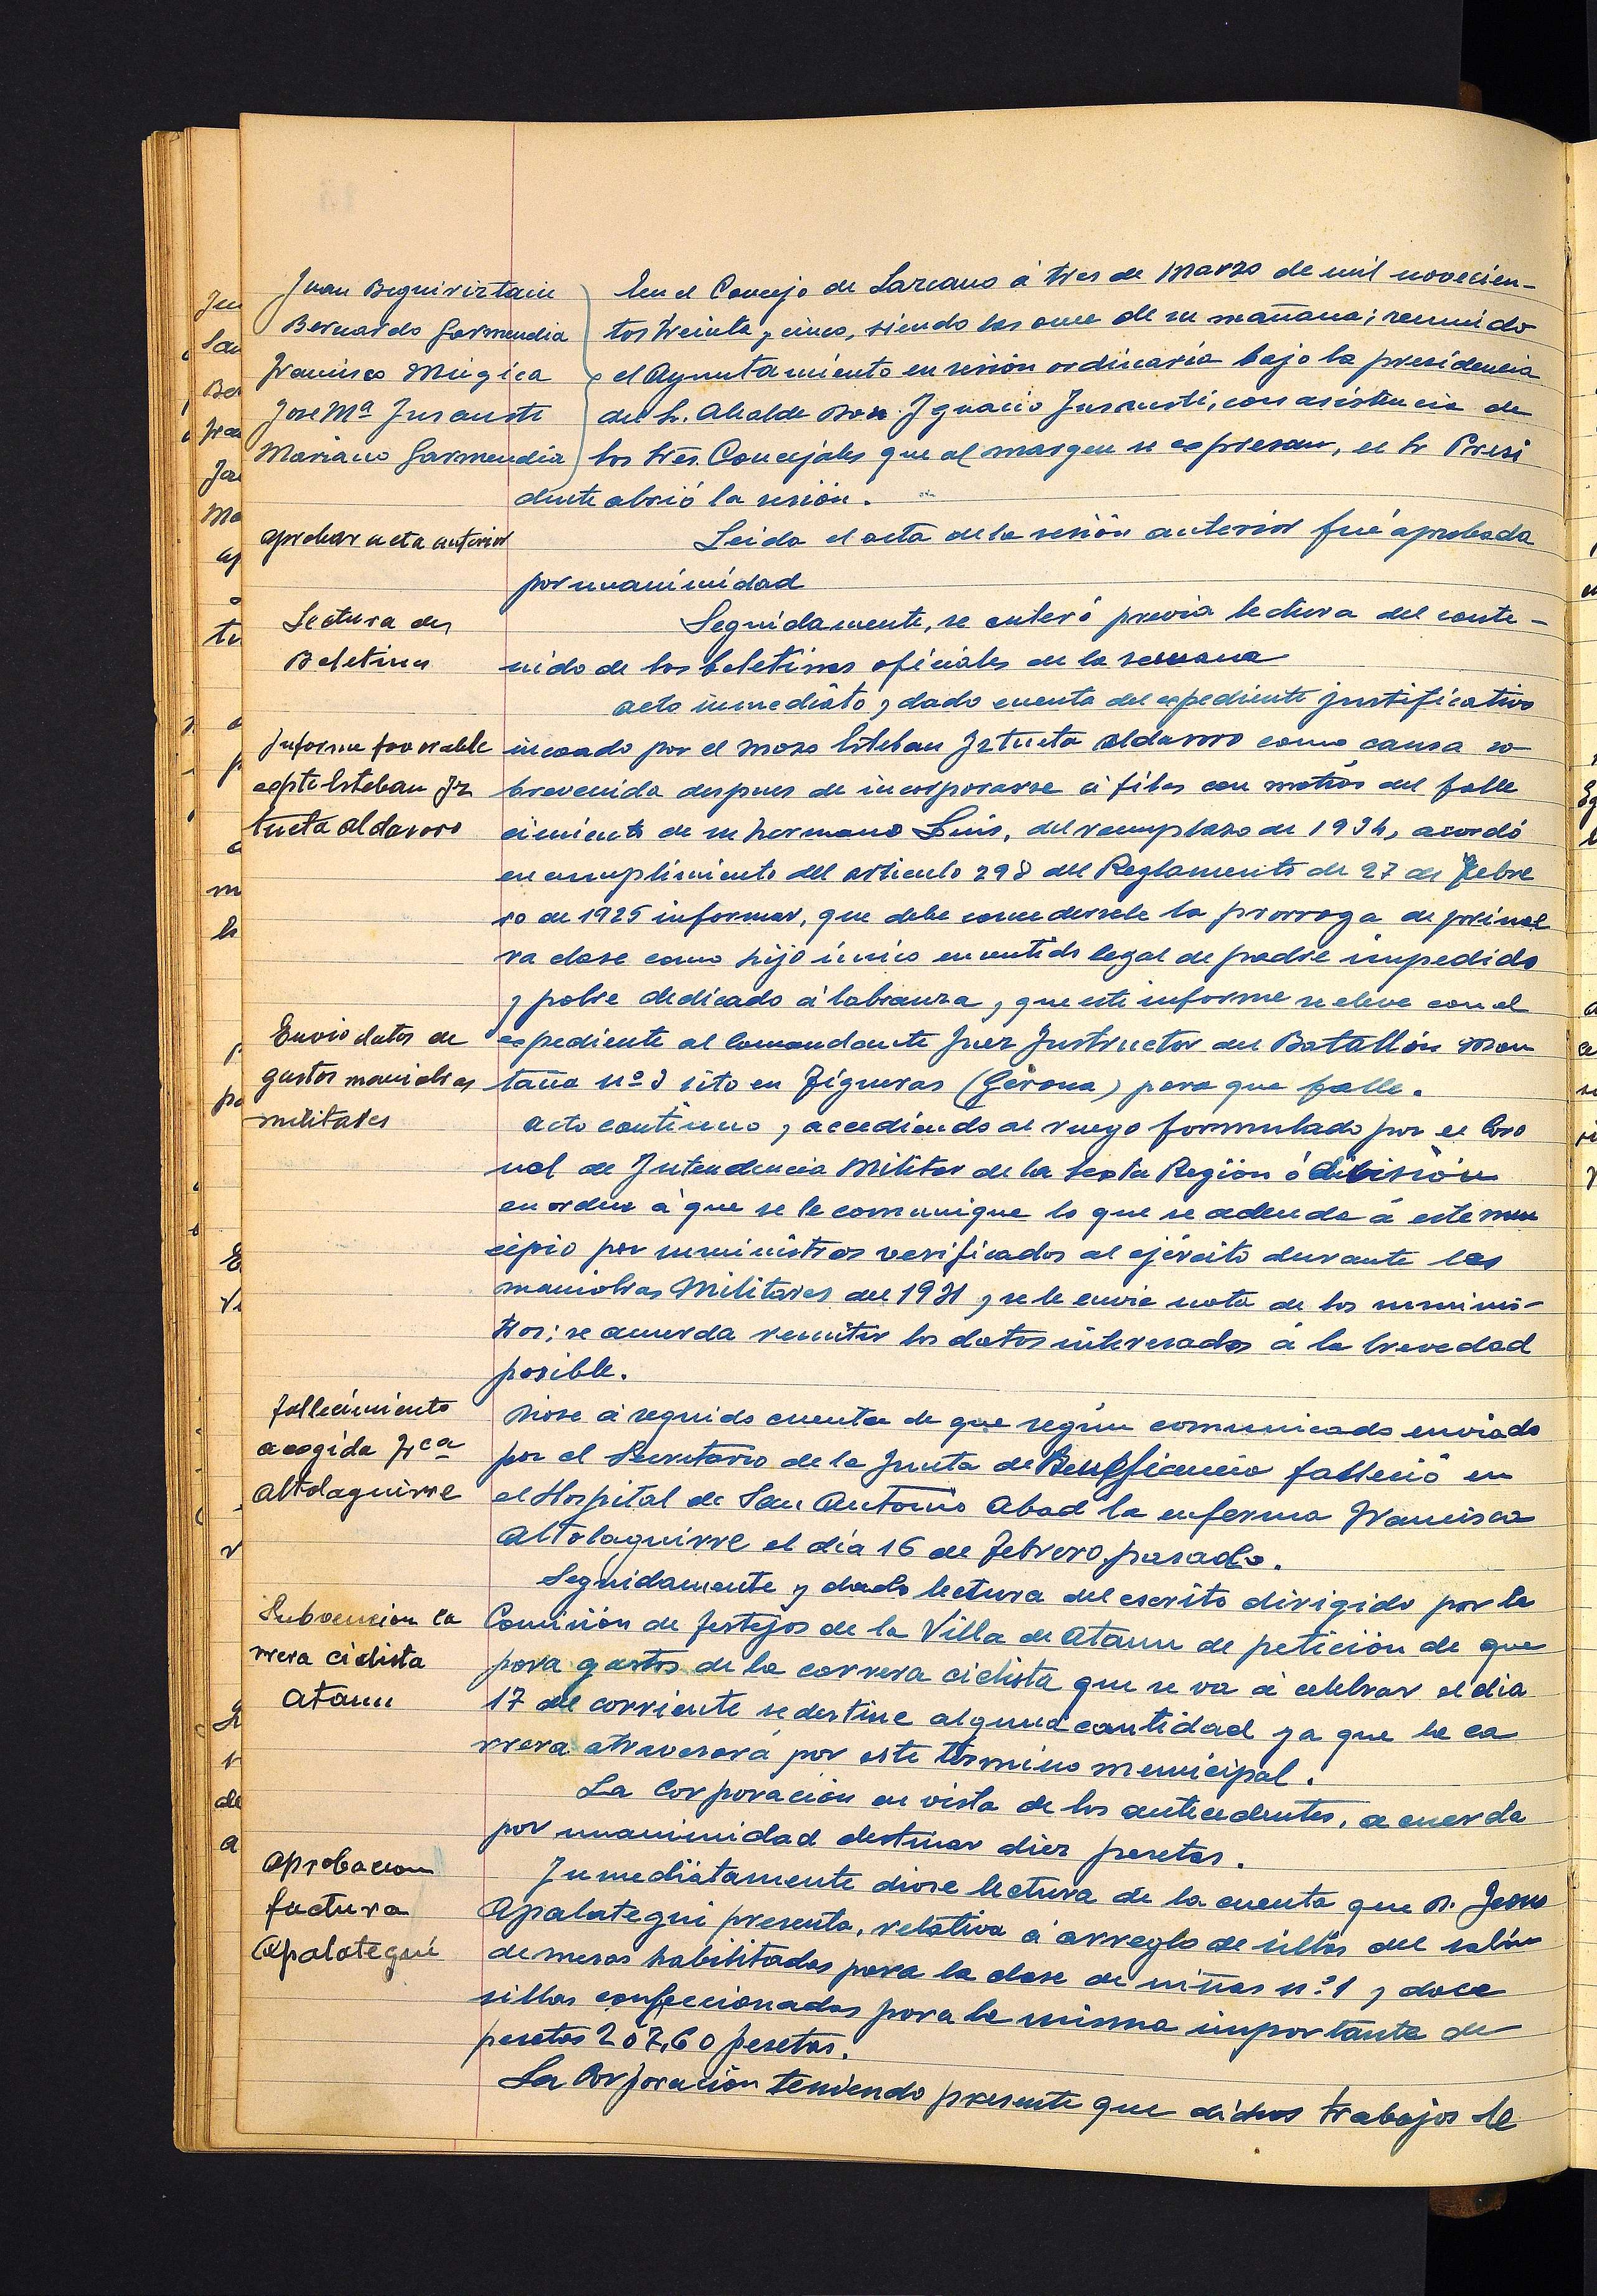 Juan Beguiriztain
Bernardo Garmendia
Francisco Múgica
Jose Mª Insausti
Mariano Garmendia
En el Concejo de Lazcano á tres de Marzo de mil novecien-
tos treinta y cinco, siendo las once de su mañana; reunido
el Ayuntamiento en sesión ordinaria bajo la presidencia
del Sr. Alcalde Don Ignacio Insausti, con asistencia de
los Sres. Concejales que al margen se expresan, el Sr Presi
dente abrió la sesión.
aprobar acta anterior
Leida el acta de la sesión anterior fué aprobada
por unanimidad
Lectura de
Boletines
Seguidamente, se enteró previa lectura del conte-
nido de los boletines oficiales de la semana
Informe favorable
expte Esteban Iz
tueta Aldasoro
acto inmediato y dado cuenta del expediente justificativo
incoado por el mozo Esteban Iztueta Aldasoro como causa so
brevenida despues de incorporarse á filas con motivo del falle
cimiento de su hermano Luis, del reemplazo de 1934, acordó
en cumplimiento del articulo 298 del Reglamento de 27 de Febre
ro de 1925 informar, que debe concedersele la prorroga de prime
ra clase como hijo único en sentido legal de padre impedido
y pobre dedicado á labranza, y que este informe se eleve con el
expediente al Comandante Juez Instructor del Batallón Mon
taña nº 3 sito en Figueras (Gerona) para que falle.
Envio datos de
gastos maniobras
militares
acto continuo y accediendo al ruego formulado por el Coro
nel de Intendencia Militar de la Sexta Región ó división
en orden á que se le comunique lo que se adeuda á este muni
cipio por suministros verificados al ejército durante las
maniobras Militares del 1931 y se le envie nota de los suminis-
tros; se acuerda remitir los datos interesados á la brevedad
posible.
fallecimiento
acogida Frca
Altolaguirre
Diose á seguido cuenta de que según comunicado enviado
por el Secretario de la Junta de Beneficencia falleció en
el Hospital de San Antonio Abad la enferma Francisca
Altolaguirre el día 16 de Febrero pasado.
Subvencion ca
rrera ciclista
Ataun
Seguidamente y dado lectura del escrito dirigido por la
Comisión de festejos de la Villa de Ataun de petición de que
para gastos de la carrera ciclista que se va á celebrar el dia
17 del corriente se destine alguna cantidad ya que la ca
rrera atravesará por este término municipal.
La Corporación en vista de los antecedentes, acuerda
por unanimidad destinar diez pesetas.
Aprobacion
factura
Apalategui
Inmediatamente diose lectura de la cuenta que D. Jesus
Apalategui presenta, relativa á arreglo de sillas del salón
de mesas habilitadas para la clase de niñas nº 1 y doce
sillas confeccionadas para la misma importante de
pesetas 207,60 pesetas.
La Corporación teniendo presente que dichos trabajos se